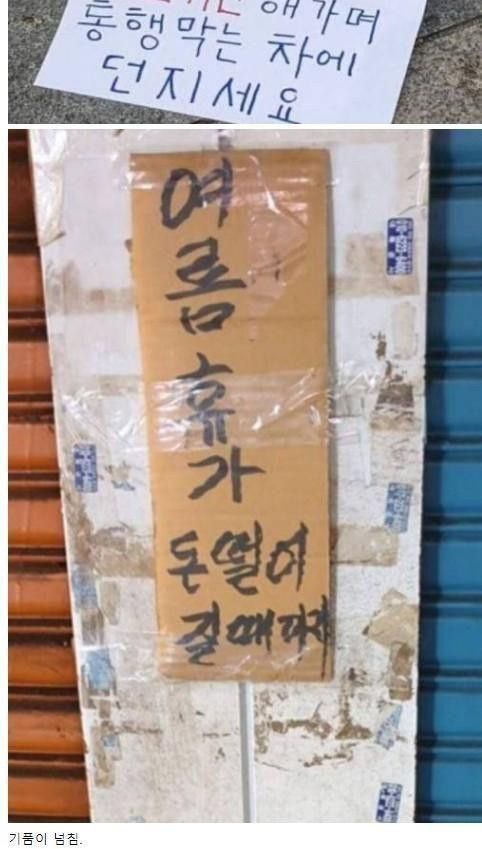 해가며
통행막는 차에
던지세요
여름휴가
돈떨어
질때까지
기품이 넘침.